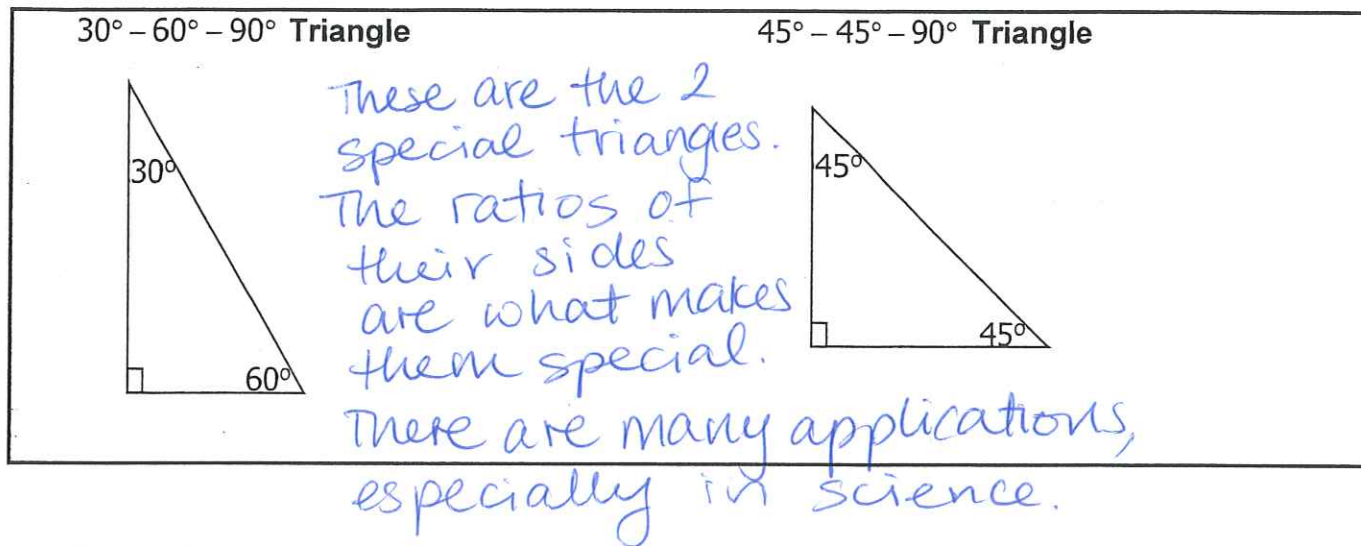 30° – 60° – 90° Triangle
45° – 45° – 90° Triangle
These are the 2
special triangles.
The ratios of
their sides
are what makes
them special.
There are many applications,
especially in science.
30°
60°
45°
45°